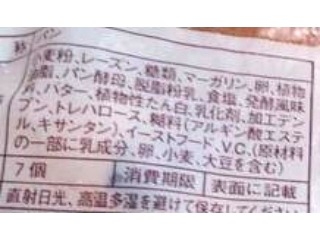 小麦粉、レーズン、糖類、マーガリン、卵、植物
油脂、パン酵母、脱脂粉乳、食塩、発酵風味
料、バター、植物性たん白、乳化剤、加工デン
プン、トレハロース、糊料(アルギン酸エステ
ル、キサンタン)、イーストフード、V.C、(原材料
の一部に乳成分、卵、小麦、大豆を含む)
7個 消費期限 表面に記載
直射日光、高温多湿を避けて保存してください